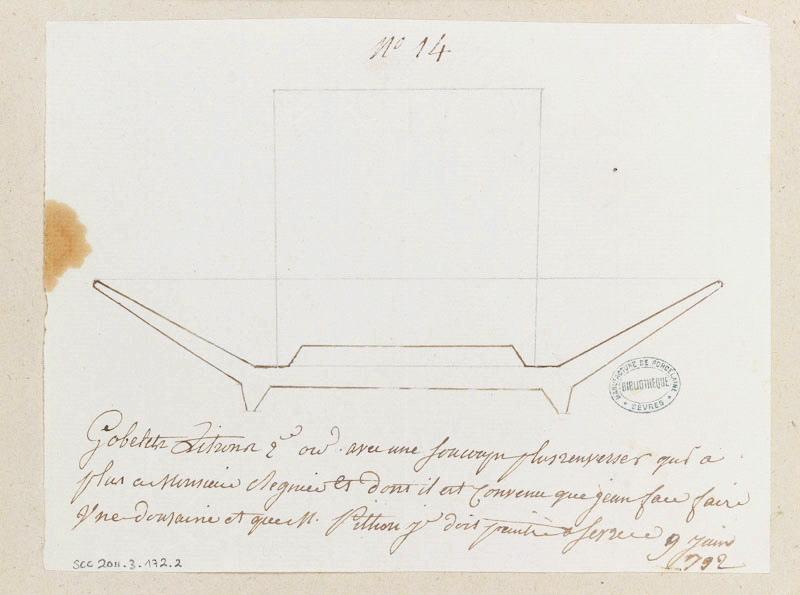 No 14
MANUFACTURE DE PORCELAINE
BIBLIOTHEQUE
SEVRES
Gobelets Litrons 2e ordr avec une soucoup plus renverser qui a
plus a Monsieur Regnier et dont il est convenu que jean face faire
Une douzaine et que M. Pithou je doit peintre a sevre ce 9 juin
1792
SCC 2011.3.172.2